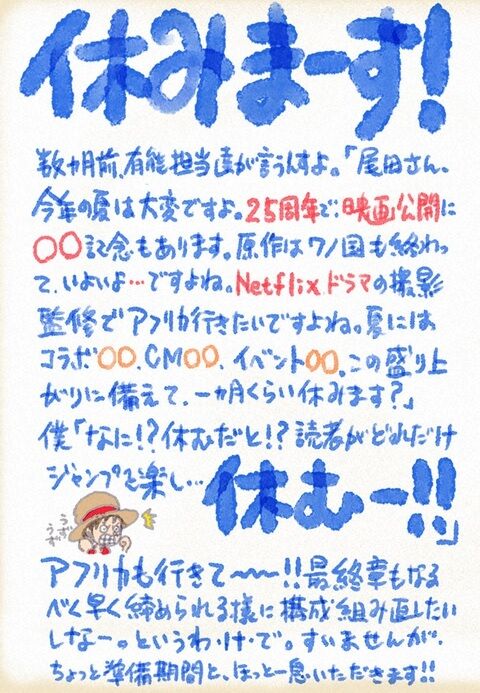 休みまーす!
数ヵ月前、有能担当達が言うんすよ。「尾田さん、
今年の夏は大変ですよ。25周年で、映画公開に
〇〇記念もあります。原作はワノ国も終わっ
て、いよいよ…ですよね。Netflixドラマの撮影
監修でアフリカ行きたいですよね。夏には
コラボ〇〇、CM〇〇、イベント〇〇。この盛り上
がりに備えて、一ヵ月くらい休みます?」
僕「なに!?休むだと!?読者がどれだけ
ジャンプを楽し…休むー!!」
うずうず
アフリカも行きて〜〜!!最終章もなる
べく早く締められる様に構成組み直したい
しなー。というわ・け・で。すいませんが、
ちょっと準備期間と、ほっと一息いただきます!!